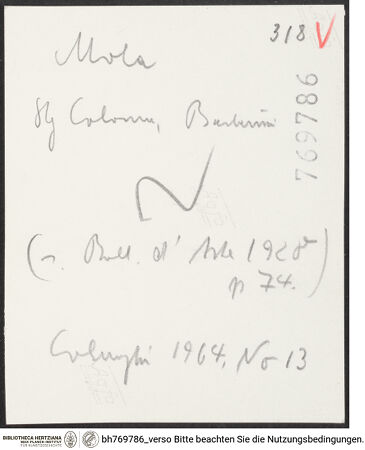 318 V
Mola
Slg Colonna, Barberini
769786
(s. Boll. d'Arte 1928
p 74.)
Colnaghi 1964, No 13
BIBLIOTHECA HERTZIANA
MAX-PLANCK-INSTITUT
bh769786_verso Bitte beachten Sie die Nutzungsbedingungen.